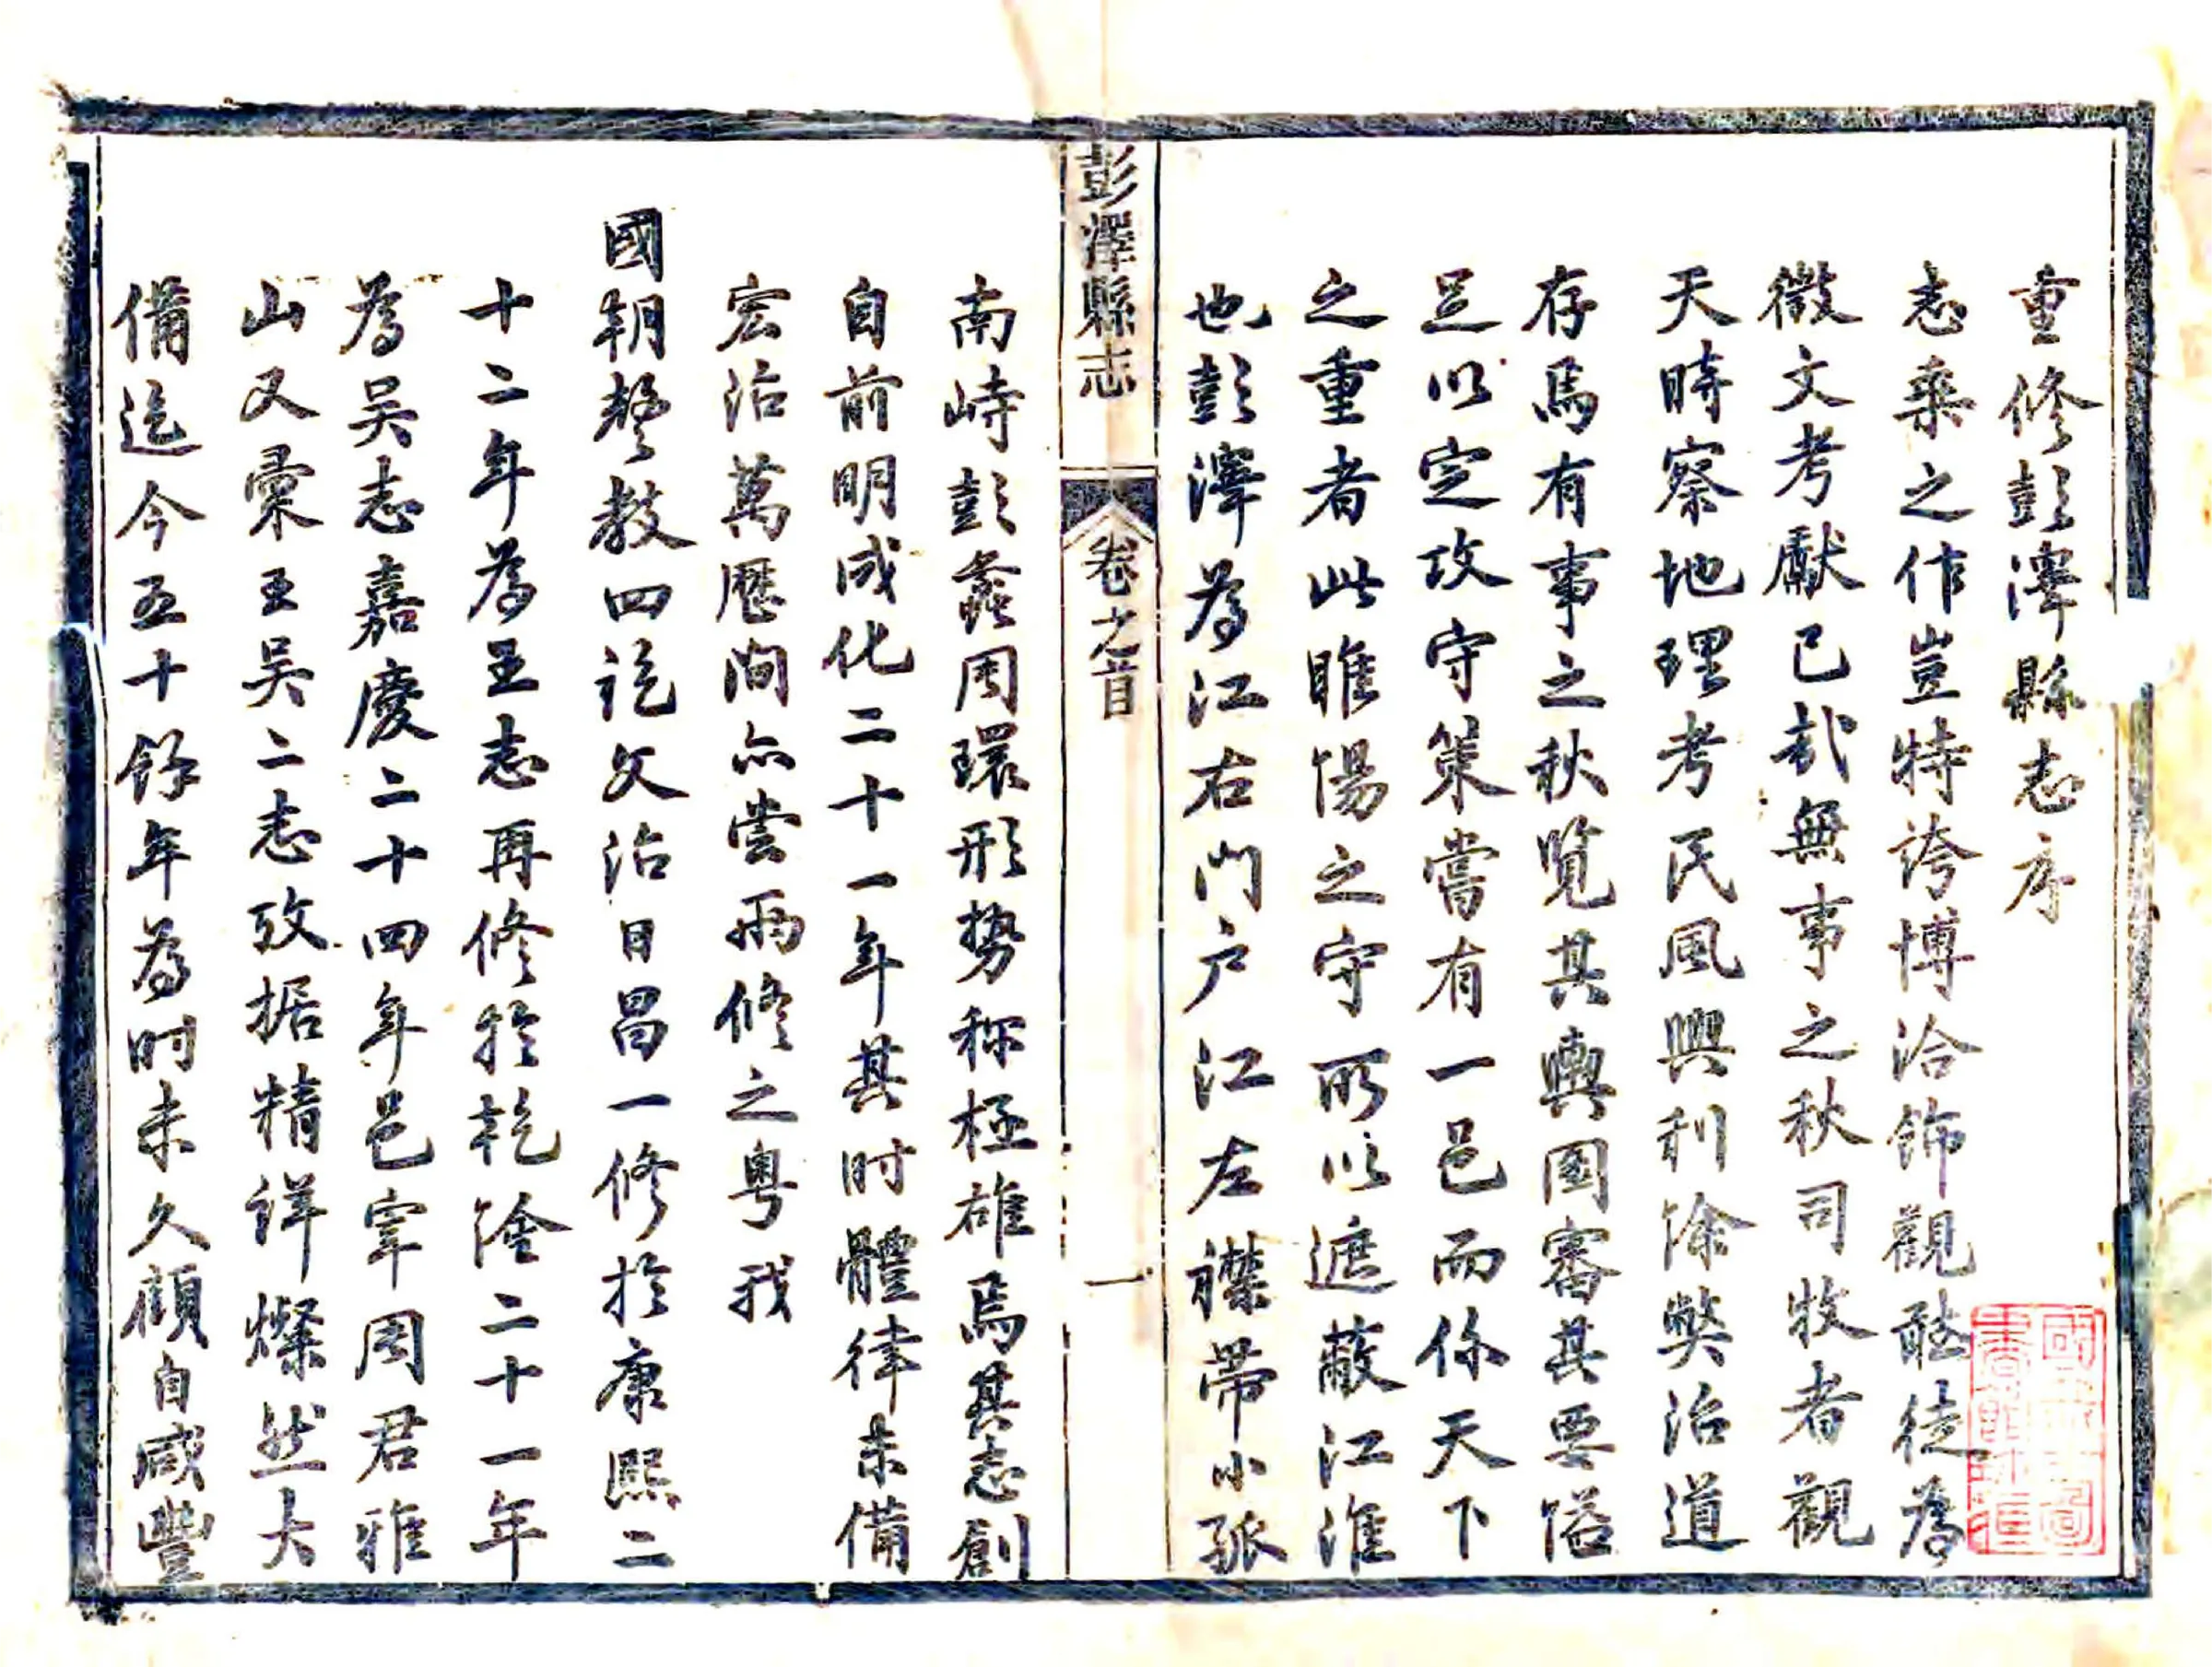 重修彭澤縣志序
志乘之作豈特誇博洽飾觀聽徒為
徵文考獻已哉無事之秋司牧者觀
天時察地理考民風興利除弊治道
存焉有事之秋覽其輿圖審其要隘
足以定攻守策嘗有一邑而係天下
之重者此睢陽之守所以遮蔽江淮
也彭澤為江右門户江左襟帶小孤
彭澤縣志
卷之首
一
南峙彭蠡周環形势称極雄焉其志創
自前明成化二十一年其时體律未備
宏治萬歷間亦嘗兩修之粤我
國朝聲教四訖文治日昌一修於康熙二
十二年為王志再修於乾隆二十一年
為吴志嘉慶二十四年邑宰周君雅
山又彙王吴二志攷据精详燦然大
備迄今五十餘年為时未久顧自咸豐